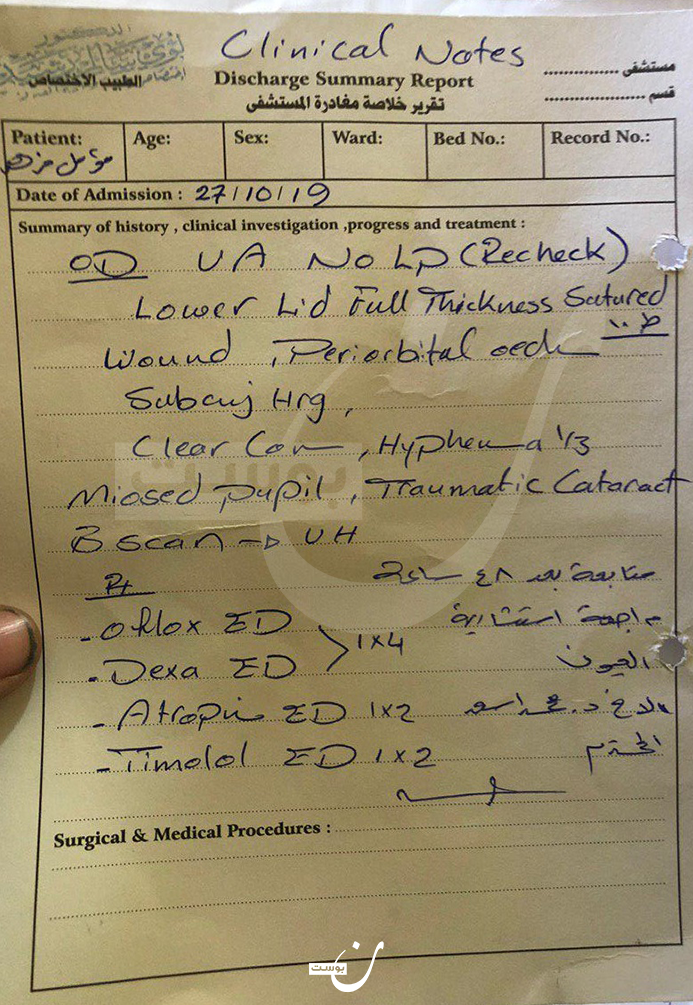 Clinical Notes
الطبيب الاختصاص
Discharge Summary Report
مستشفى
تقرير خلاصة مغادرة المستشفى
قسم
Patient: Age: Sex: Ward: Bed No.: Record No.:
مؤمل
Date of Admission : 27/10/19
Summary of history , clinical investigation ,progress and treatment :
OD VA No LP (Recheck)
Lower Lid Full Thickness Sutured
Wound , Periorbital oed
Subconj Hrg ,
Clear Cor , Hyphema 1/3
Miosed pupil , Traumatic Cataract
B scan → VH
متابعة بعد ٤٨ ساعة
- Oflox ED
مراجعة استشارية
1x4
- Dexa ED
العيون
- Atropin ED 1x2
- Timolol ED 1x2
المحترم
Surgical & Medical Procedures :
نون بوست